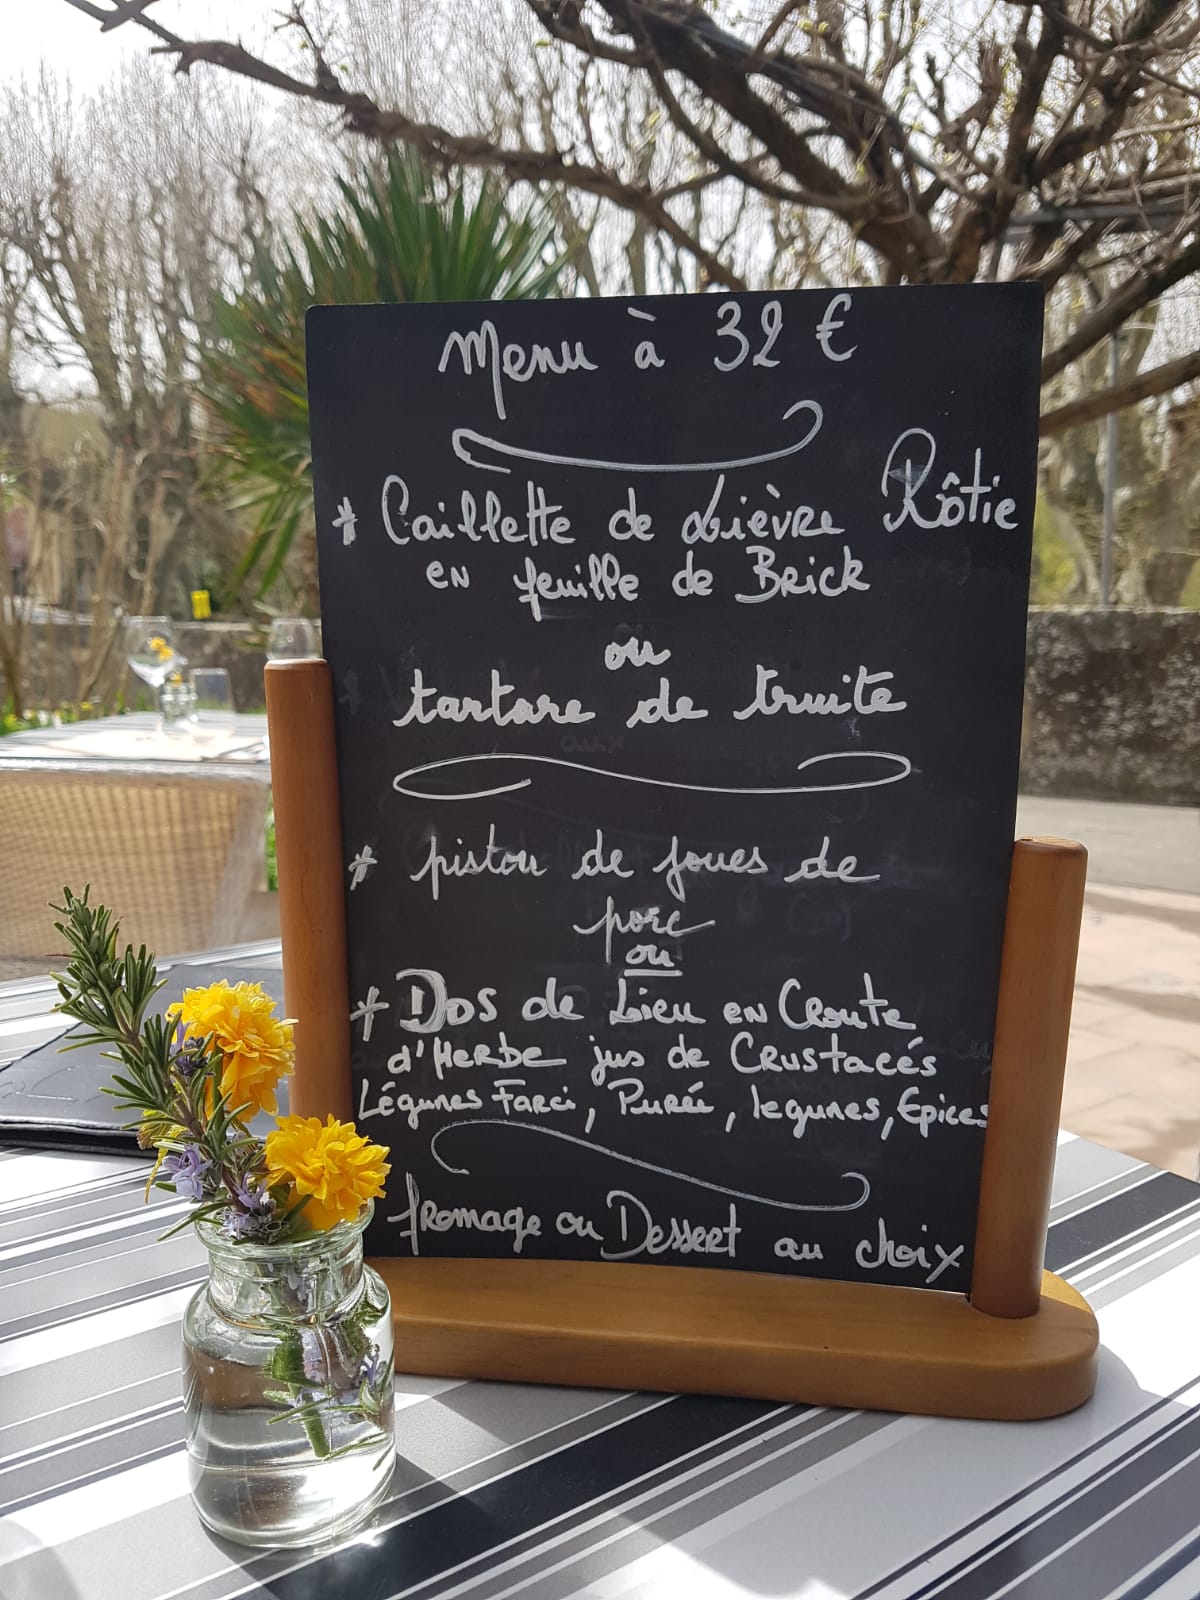 Menu à 32 €
* Caillette de Lièvre Rôtie
en feuille de Brick
ou
tartare de truite
* piston de joues de
porc
ou
* Dos de Lieu en Croute
d'Herbe jus de Crustacés
Légumes Farci, Purée, legumes, Epices
fromage ou Dessert au choix